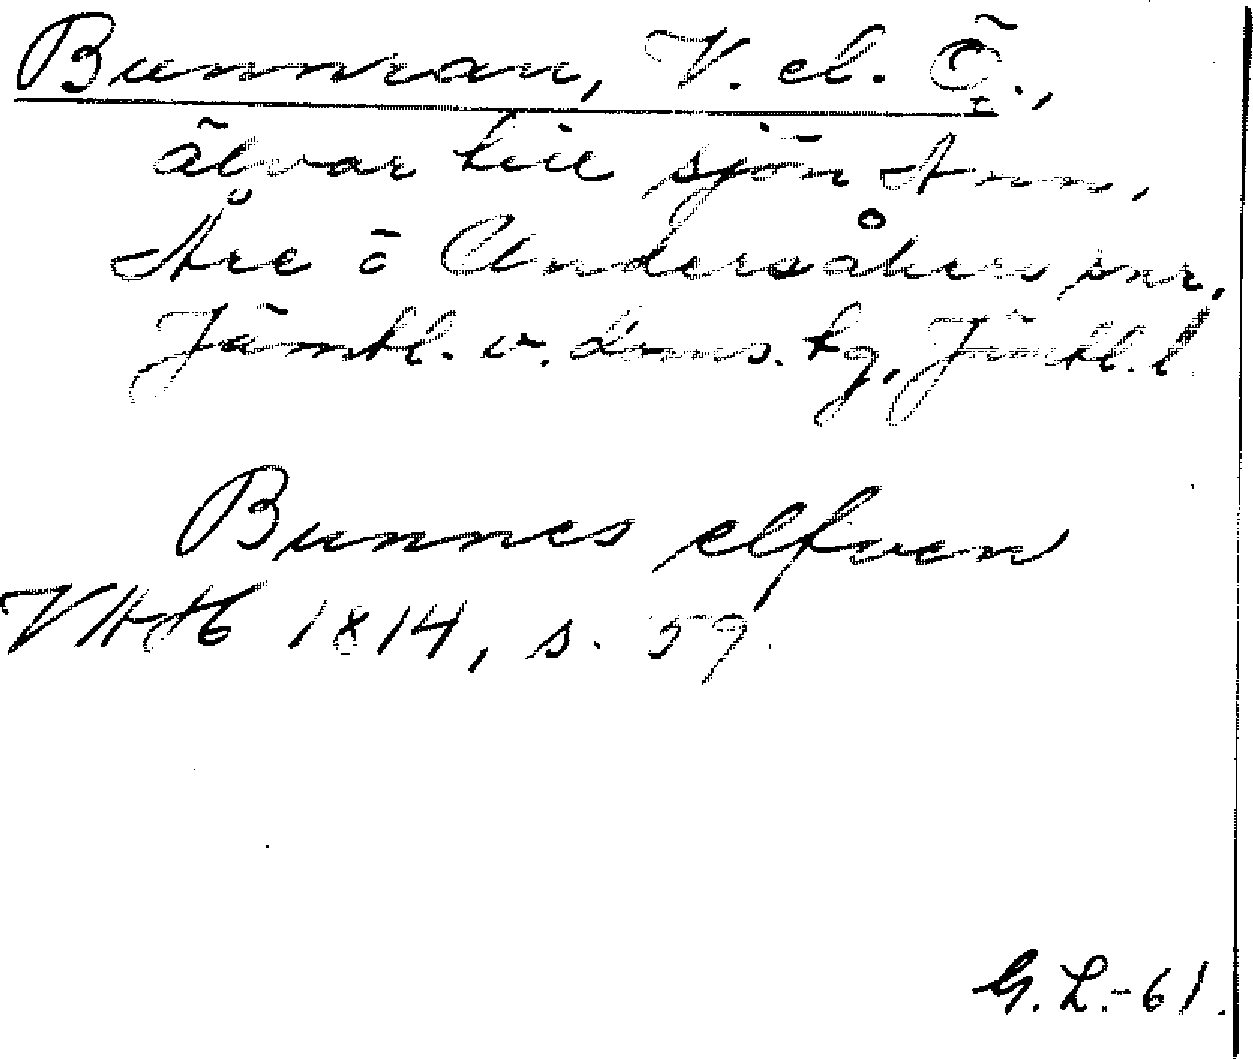 Bunnran, V. el. Ö.,
älvar till sjön Ann,
Åre o Undersåkers snr,
Jämtl. v. doms. tg, Jämtl. l.
Bunnes elfven
VHAH 1814, s. 59.
G. L.-61.